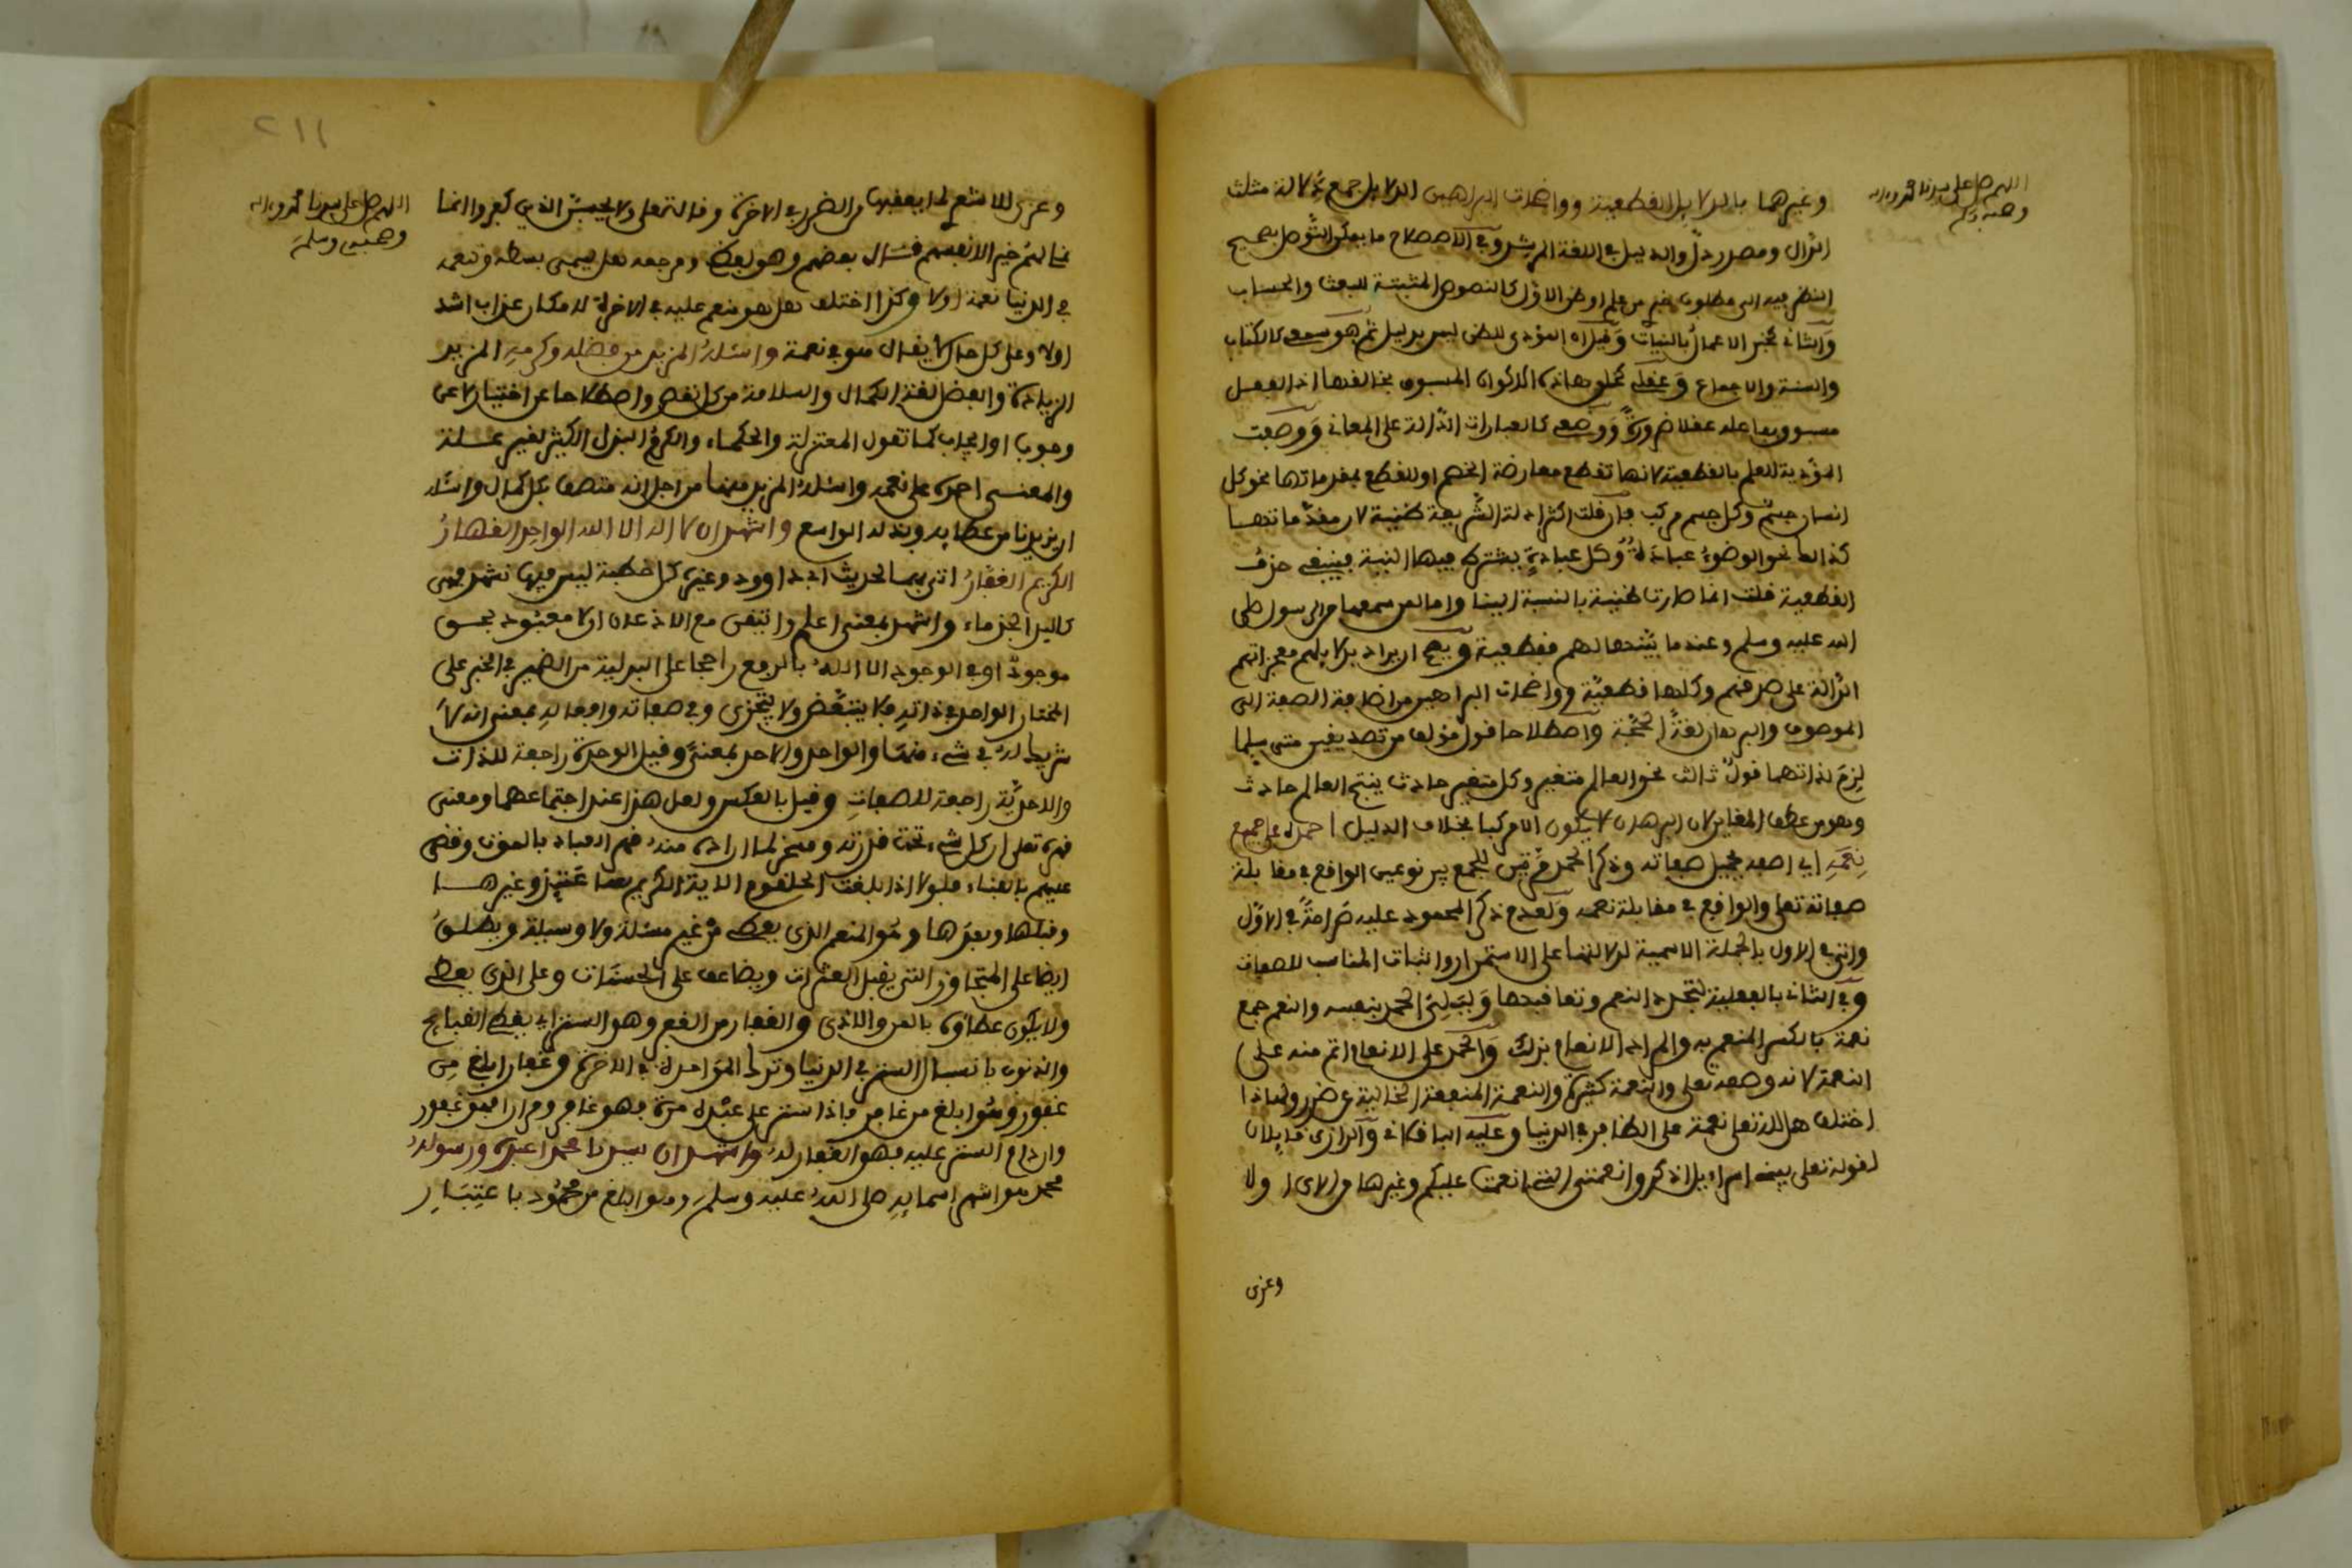 اللهم صل على سيدنا محمد وءاله
وصحبه وسلم
وغيرهما بالدلايل القطعية وواضحات البراهين الدلايل جمع دلالة مثلث
الدال ومصدر دلّ والدليل في اللغة المرشد وفي الاصطلاح ما يمكن التوصل بصحيح
النظر فيه الى مطلوب خبري من علم او ظن الاول كالنصوص المثبتة للبعث والحساب
والثاني كخبر الاعمال بالنيات وقيل ان المؤدي للظن ليس بدليل ثم هو سمعي كالكتاب
والسنة والاجماع وعقلي كحدوث هاذه الاكوان المسبوق بخالقها اذ الفعل
مسبوق بفاعله عقلا ضرورة ووضعي كالعبارات الدالة على المعاني ووصفت
المؤدية للعلم بالقطعية لانها تقطع معارضة الخصم او للقطع بمقدماتها نحو كل
انسان جسم وكل جسم مركب فان قلت اكثر ادلة الشريعة ظنية لان مقدماتها
كذالك نحو الوضوء عبادة وكل عبادة يشترط فيها النية فينبغي حذف
القطعية قلت انما صارت ظنية بالنسبة الينا واما لمن سمعها من الرسول صلى
الله عليه وسلم وعندما بينها لهم فقطعية ويصح ان يراد بدلايلهم معجزاتهم
الدالة على صدقهم وكلها قطعية وواضحات البراهين من اضافة الصفة الى
الموصوف والبرهان لغة الحجة واصطلاحا قول مؤلف من تصديقين متى سلما
لزم لذاتهما قول ثالث نحو العالم متغير وكل متغير حادث ينتج العالم حادث
وهو من عطف المغاير لان البرهان لا يكون الا مركبا بخلاف الدليل احمده على جميع
نعمه اي اصفه بجميل صفاته وذكر الحمد مرتين للجمع بين نوعيه الواقع في مقابلة
صفاته تعلى والواقع في مقابلة نعمه ولعدم ذكر المحمود عليه صراحة في الاول
واتى في الاول بالجملة الاسمية لدلالتها على الاستمرار والثبات المناسب للصفات
وفي الثاني بالفعلية لتجدد النعم وتعاقبها وليلي الحمد بنفسه والنعم جمع
نعمة بالكسر المنعم به والمراد الانعام بذلك والحمد على الانعام اتم منه على
النعمة لانه وصفه تعلى والنعمة كثيرة والنعمة المنفعة الخالية عن ضرر ولهاذا
اختلف هل لله تعلى نعمة على الكافر في الدنيا وعليه الباقلاني والرازي قايلان
لقوله تعلى يبنى اسراءيل اذكروا نعمتي التي انعمت عليكم وغيرها من الآي او لا
وعزي
٢١١
اللهم صل على سيدنا محمد وءاله
وصحبه وسلم
وعزي للاشعري لما يعقبها من الضرر في الاخرة وقال تعلى ولا يحسبن الذين كفروا انما
نملي لهم خير لانفسهم قال بعضهم وهو لفظي ومرجعه هل يسمى بسطه ونعمه
في الدنيا نعمة او لا وكذا اختلف هل هو منعم عليه في الاخرة لامكان عذاب اشد
او لا وعلى كل حال لا يقال هو في نعمة واسئله المزيد من فضله وكرمه المزيد
الزيادة والفضل لغة الكمال والسلامة من كل نقص واصطلاحا عن اختيار لا عن
وجوب او ايجاب كما تقول المعتزلة والحكماء والكرم البذل الكثير لغير مسئلة
والمعنى احمده على نعمه واسئله المزيد منها من اجل انه متصف بكل كمال واسئله
ان يزيدنا من عطايه وبذله الواسع واشهد ان لا اله الا الله الواحد القهار
الكريم الغفار اتى بهما لحديث ابي داوود وغيره كل خطبة ليس فيها تشهد فهي
كاليد الجذماء واشهد بمعنى اعلم واتيقن مع الاذعان ان لا معبود بحق
موجود او في الوجود الا الله بالرفع راجحا على البدلية من الضمير في الخبر على
المختار الواحد في ذاته فلا يتبعض ولا يتجزى وفي صفاته وافعاله بمعنى انه لا
شريك له في شيء منها والواحد والاحد بمعنى وقيل الوحدة راجعة للذات
والاحدية راجعة للصفات وقيل بالعكس ولعل هذا عند اجتماعهما ومعنى
قهره تعلى ان كل شيء تحت قدرته ومسخر لما اراده منه قهر العباد بالموت وقضى
عليهم بالفناء فلولا اذا بلغت الحلقوم الاية الكريم وغيرها
وقبلها وبعدها وهو المنعم الذي يعطي من غير مسئلة ولا وسيلة ويطلق
ايضا على المتجاوز الذي يقبل العثرات ويضاعف على الحسنات وعلى الذي يعطي
ولا يكون عطاؤه بالمن والاذى والغفار من الغفر وهو الستر اي يغطي القبايح
والذنوب باسبال الستر في الدنيا وترك المؤاخذة في الاخرة وغفار ابلغ من
غفور وهو ابلغ من غافر فاذا ستر على عبده مرة فهو غافر ومرارا فهو غفور
وان دام الستر عليه فهو الغفار له واشهد ان سيدنا محمدا عبده ورسوله
محمد هو اشهر اسمايه صلى الله عليه وسلم وهو ابلغ من محمود باعتبار